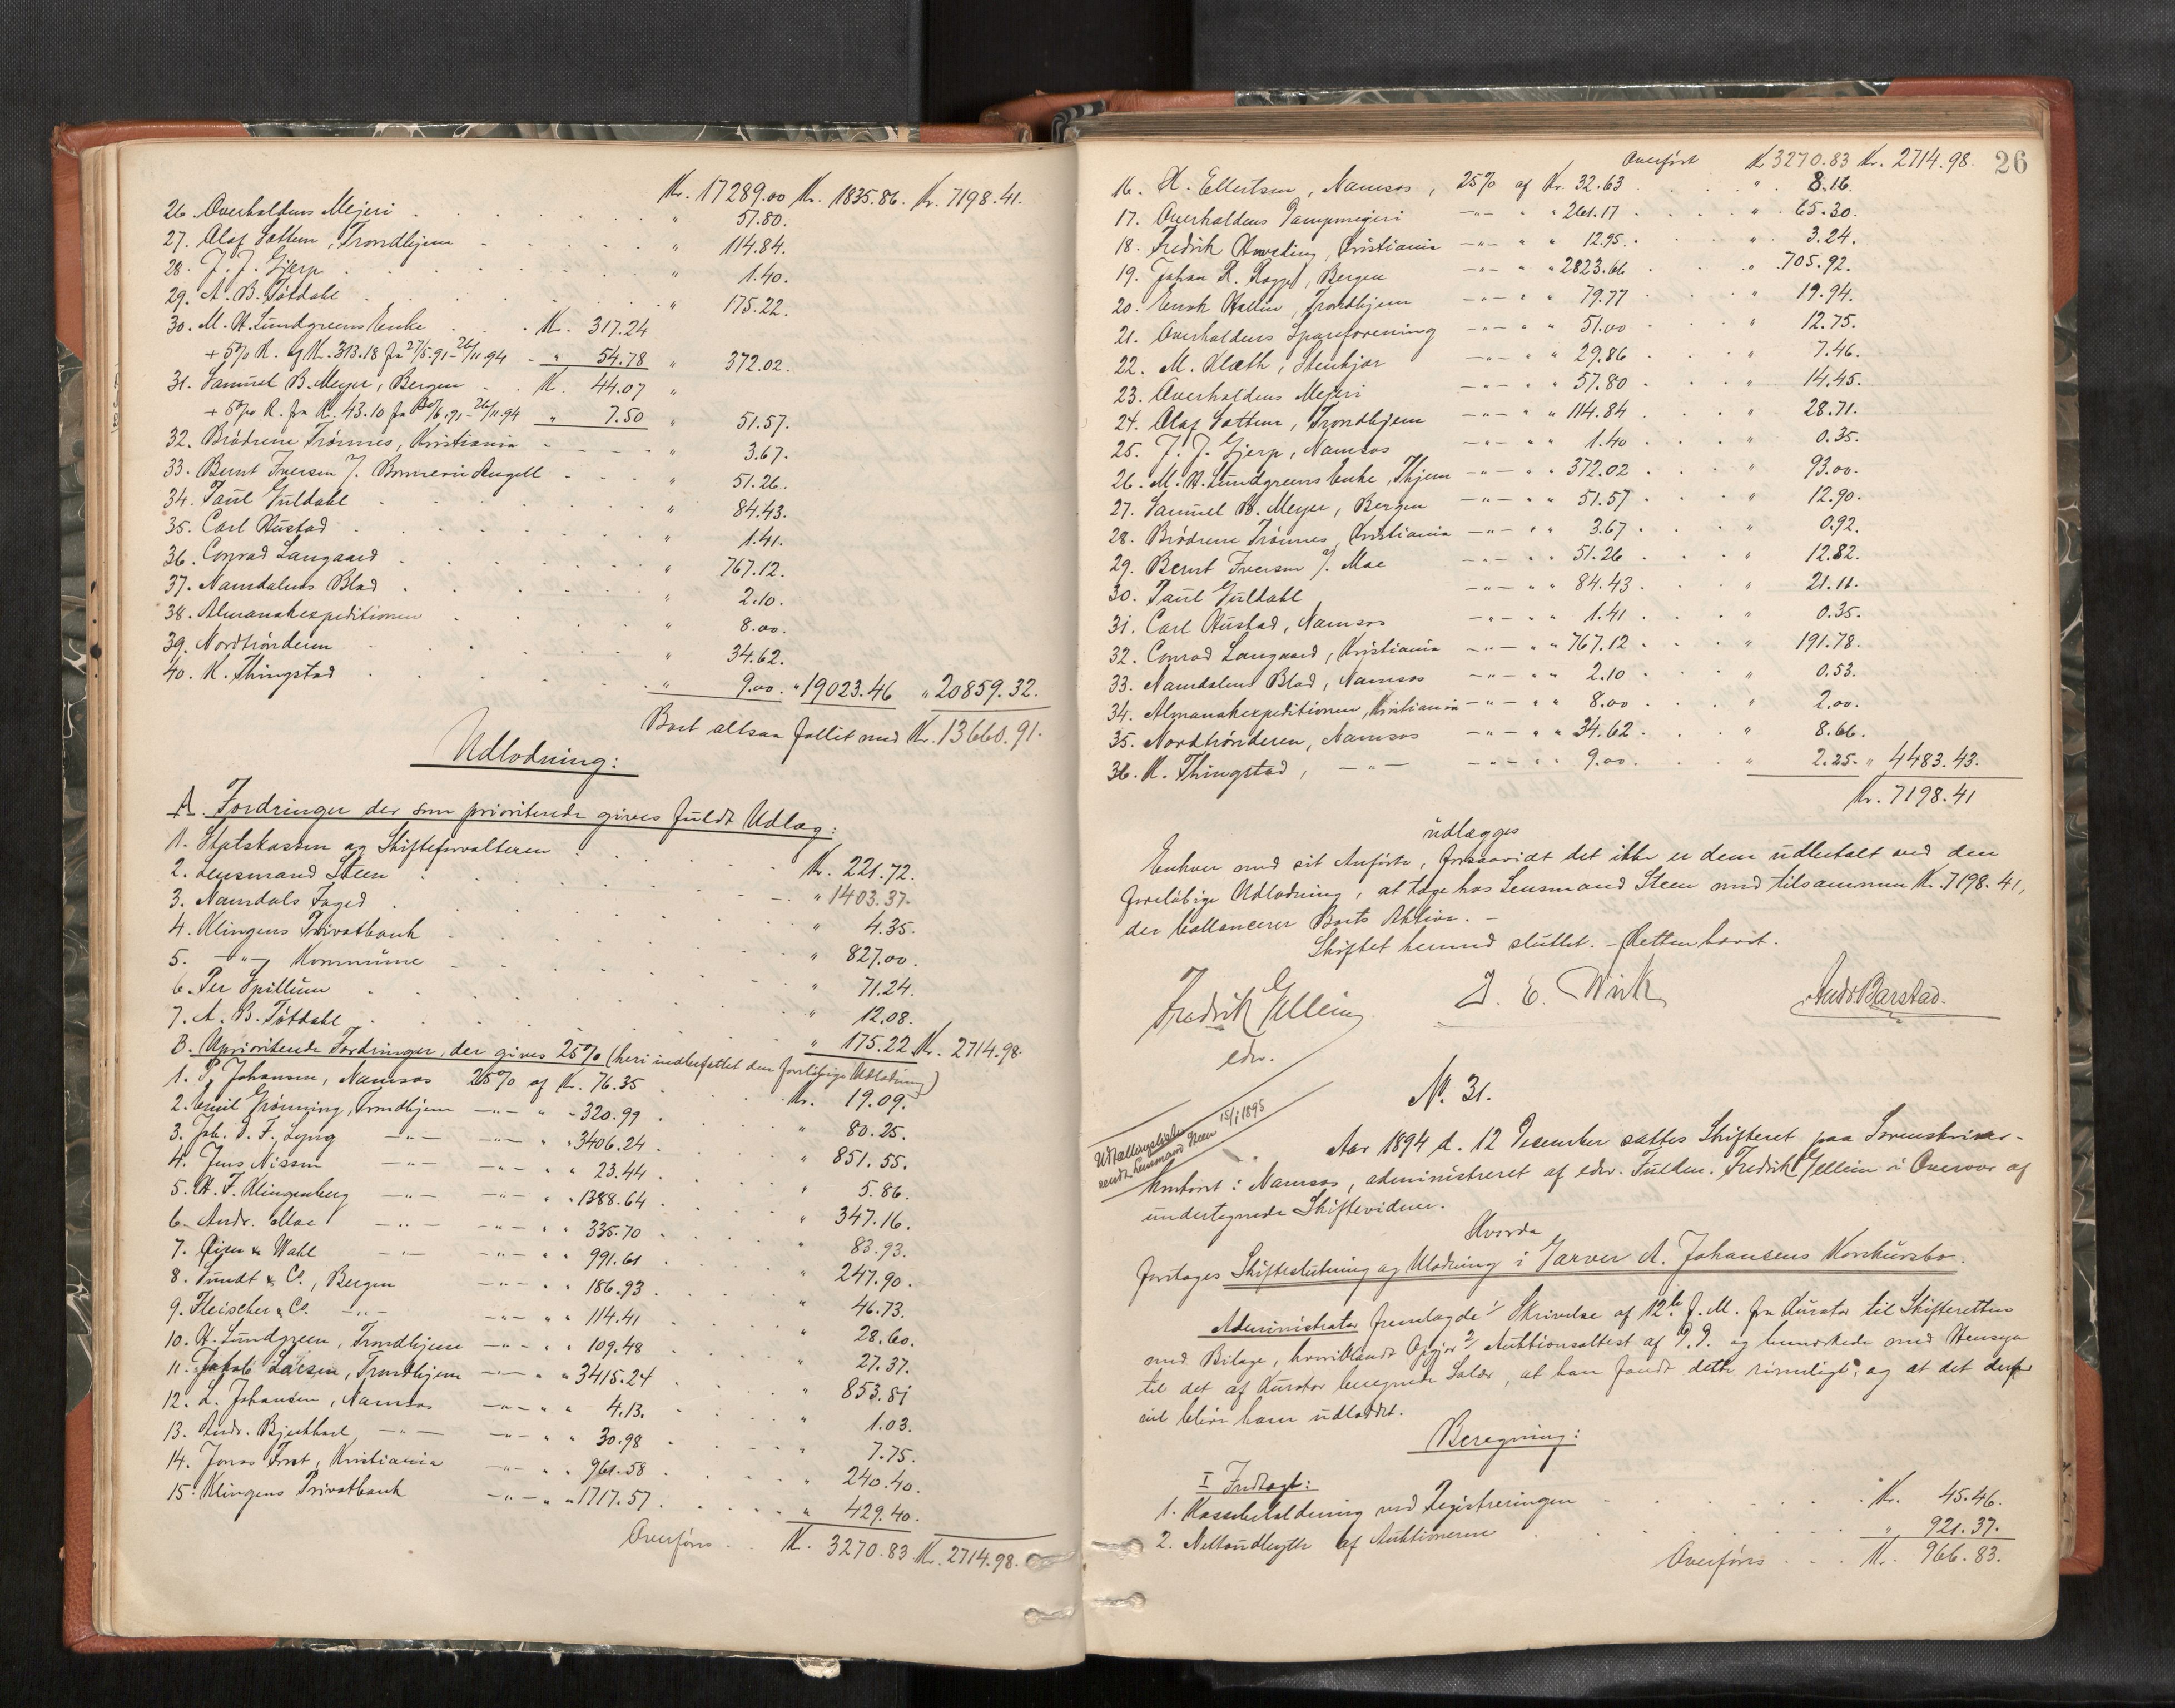 Kr. 17289.00 Kr. 1835.86. Kr. 7198.41.
26. Overhaldens Mejeri . . . " 57.80.
27. Olaf Sattem, Trondhjem . . . " 114.84.
28. J. J. Gjerp . . . " 1.40.
29. A. B. Tötdahl . . . " 175.22.
30. M. H. Lundgreens Enke . . . Kr. 317.24
+ 5% R. af Kr. 313.18 fra 27/5.91 - 26/11.94 - " 54.78 " 372.02.
31. Samuel B. Meyer, Bergen . . Kr. 44.07 "
+ 5% R. fra Kr. 43.10 fra /6.91 - 26/11.94 " 7.50 " 51.57.
32. Brödrene Trönnes, Kristiania - . . . " 3.67.
33. Bernt Iversen f. Angell . . . " 51.26.
34. Paul Guldahl . . . " 84.43.
35. Carl Hustad . . . " 1.41.
36. Conrad Langaard . . . " 767.12.
37. Namdalens Blad . . . " 2.10.
38. Almanakexpeditionen . . . " 8.00.
39. Nordtrönderen . . . " 34.62.
40. K. Thingstad . . . " 9.00. " 19023.46 " 20859.32.
Boet altsaa fallit med Kr. 13660.91.
Udlodning:
A. Fordringer der som prioriterede gives fuldt Udlæg:
1. Statskassen og Skifteforvalteren . . . Kr. 221.72.
2. Lensmand Steen . . . " 1403.37.
3. Namdals Foged . . . " 4.35.
4. Klingens Privatbank . . . " 827.00.
5. -"- Kommune . . . " 71.24.
6. Per Spillum . . . " 12.08.
7. A. B. Tötdahl . . . " 175.22 Kr. 2714.98.
B. Uprioriterede Fordringer, der gives 25% (heri indbefattet den forelöbige Udlodning)
1. P. Johansen, Namsos 25% af Kr. 76.35 . . . Kr. 19.09.
2. Emil Grönning, Trondhjem -"- " " 320.99 . . . " 80.25.
3. Joh. O. F. Lyng -"- -"- " " 3406.24 . . . " 851.55.
4. Jens Nissen -"- -"- " " 23.44 . . . " 5.86.
5. H. F. Klingenberg -"- -"- " " 1388.64 . . . " 347.16.
6. Andr. Moe -"- -"- " " 335.70 . . . " 83.93.
7. Öien & Wahl -"- -"- " " 991.61 . . . " 247.90.
8. Sundt & Co., Bergen -"- " " 186.93 . . . " 46.73.
9. Fleischer & Co. -"- -"- " " 114.41 . . . " 28.60.
10. H. Lundgreen, Trondhjem -"- " " 109.48 . . . " 27.37.
11. Jakob Larsen, Trondhjem -"- " " 3415.24 . . . " 853.81
12. L. Johansen, Namsos -"- " " 4.13. . . . " 1.03.
13. Andr. -"- -"- " " 30.98 . . . " 7.75.
14. Jonas Frost, Kristiania -"- " " 961.58 . . . " 240.40.
15. Klingens Privatbank -"- " " 1717.57 . . . " 429.40.
Overføres . . Kr. 3270.83 Kr. 2714.98.
Overført Kr 3270.83 Kr. 2714.98. 26
16. H. Ellertsen, Namsos, 25% af Kr. 32.63 . . . " 8.16.
17. Overhaldens Dampmejeri -"- " " 261.17 . . . " 65.30.
18. Fredrik, Kristiania -"- " " 12.95. . . . " 3.24.
19. Johan R., Bergen -"- " " 2823.66 . . . " 705.92.
20. Enok Hallin, Trondhjem -"- " " 79.77 . . . " 19.94.
21. Overhaldens Spareforening -"- " " 51.00 . . . " 12.75.
22. M. Klæth, Stenkjær -"- " " 29.86 . . . " 7.46.
23. Overhaldens Mejeri -"- " " 57.80 . . . " 14.45.
24. Olaf Sattem, Trondhjem -"- " " 114.84 . . . " 28.71.
25. J. J. Gjerp, Namsos -"- " " 1.40 . . . " 0.35.
26. M. H. Lundgreens Enke, Thjem -"- " " 372.02 . . . " 93.00.
27. Samuel B. Meyer, Bergen -"- " " 51.57 . . . " 12.90.
28. Brødrene Trönnes, Kristiania -"- " " 3.67 . . . " 0.92.
29. Bernt Iversen f. Moe -"- " " 51.26 . . . " 12.82.
30. Paul Guldahl -"- " " 84.43 . . . " 21.11.
31. Carl Hustad, Namsos -"- " " 1.41 . . . " 0.35.
32. Conrad Langaard, Kristiania -"- " " 767.12 . . . " 191.78.
33. Namdalens Blad, Namsos -"- " " 2.10 . . . " 0.53.
34. Almanakexpeditionen, Kristiania -"- " " 8.00 . . . " 2.00.
35. Nordtrönderen, Namsos -"- " " 34.62 . . . " 8.66.
36. K. Thingstad, -"- -"- " " 9.00. . . . " 2.25. " 4483.43.
Kr. 7198.41
udlægges
Enhver med sit Anførte, forsaavidt det ikke er dem udbetalt ved den
foreløbige Udlodning, at tage hos Lensmand Steen med tilsammen Kr. 7198.41,
der ballancerer Boets Aktiva. -
Skiftet hermed sluttet. - Retten hævet.
Fredrik Gellein J. E. Wiik Andr Barstad.
edv.
N. 31.
Udstillingslisten
sendt Lensmand Steen 15/1 1895
Aar 1894 d. 12 December sattes Skifteret paa Sorenskriver-
kontoret i Namsos, administreret af edsv. Fuldm. Fredrik Gellein i Overvær af
undertegnede Skiftevidner.
Hvorda
foretoges Skifteslutning og Ulodning i Garver A. Johansens Konkursbo.
Administrator fremlagde 1/ Skrivelse af 12te f. M. fra Kurator til Skifteretten
med Bilage, hvoriblandt Opgjør 2/ Auktionsattest af D.D. og bemærkede med Hensyn
til det af Kurator beregnede Salær, at han fandt dette rimeligt, og at det derfor
vil blive ham udloddet.
Beregning:
I Indtægt:
1. Kassebeholdning ved Registreringen . . . Kr. 45.46.
2. Nettoudbytte af Auktionerne . . . " 921.37.
Overføres . . . Kr. 966.83.